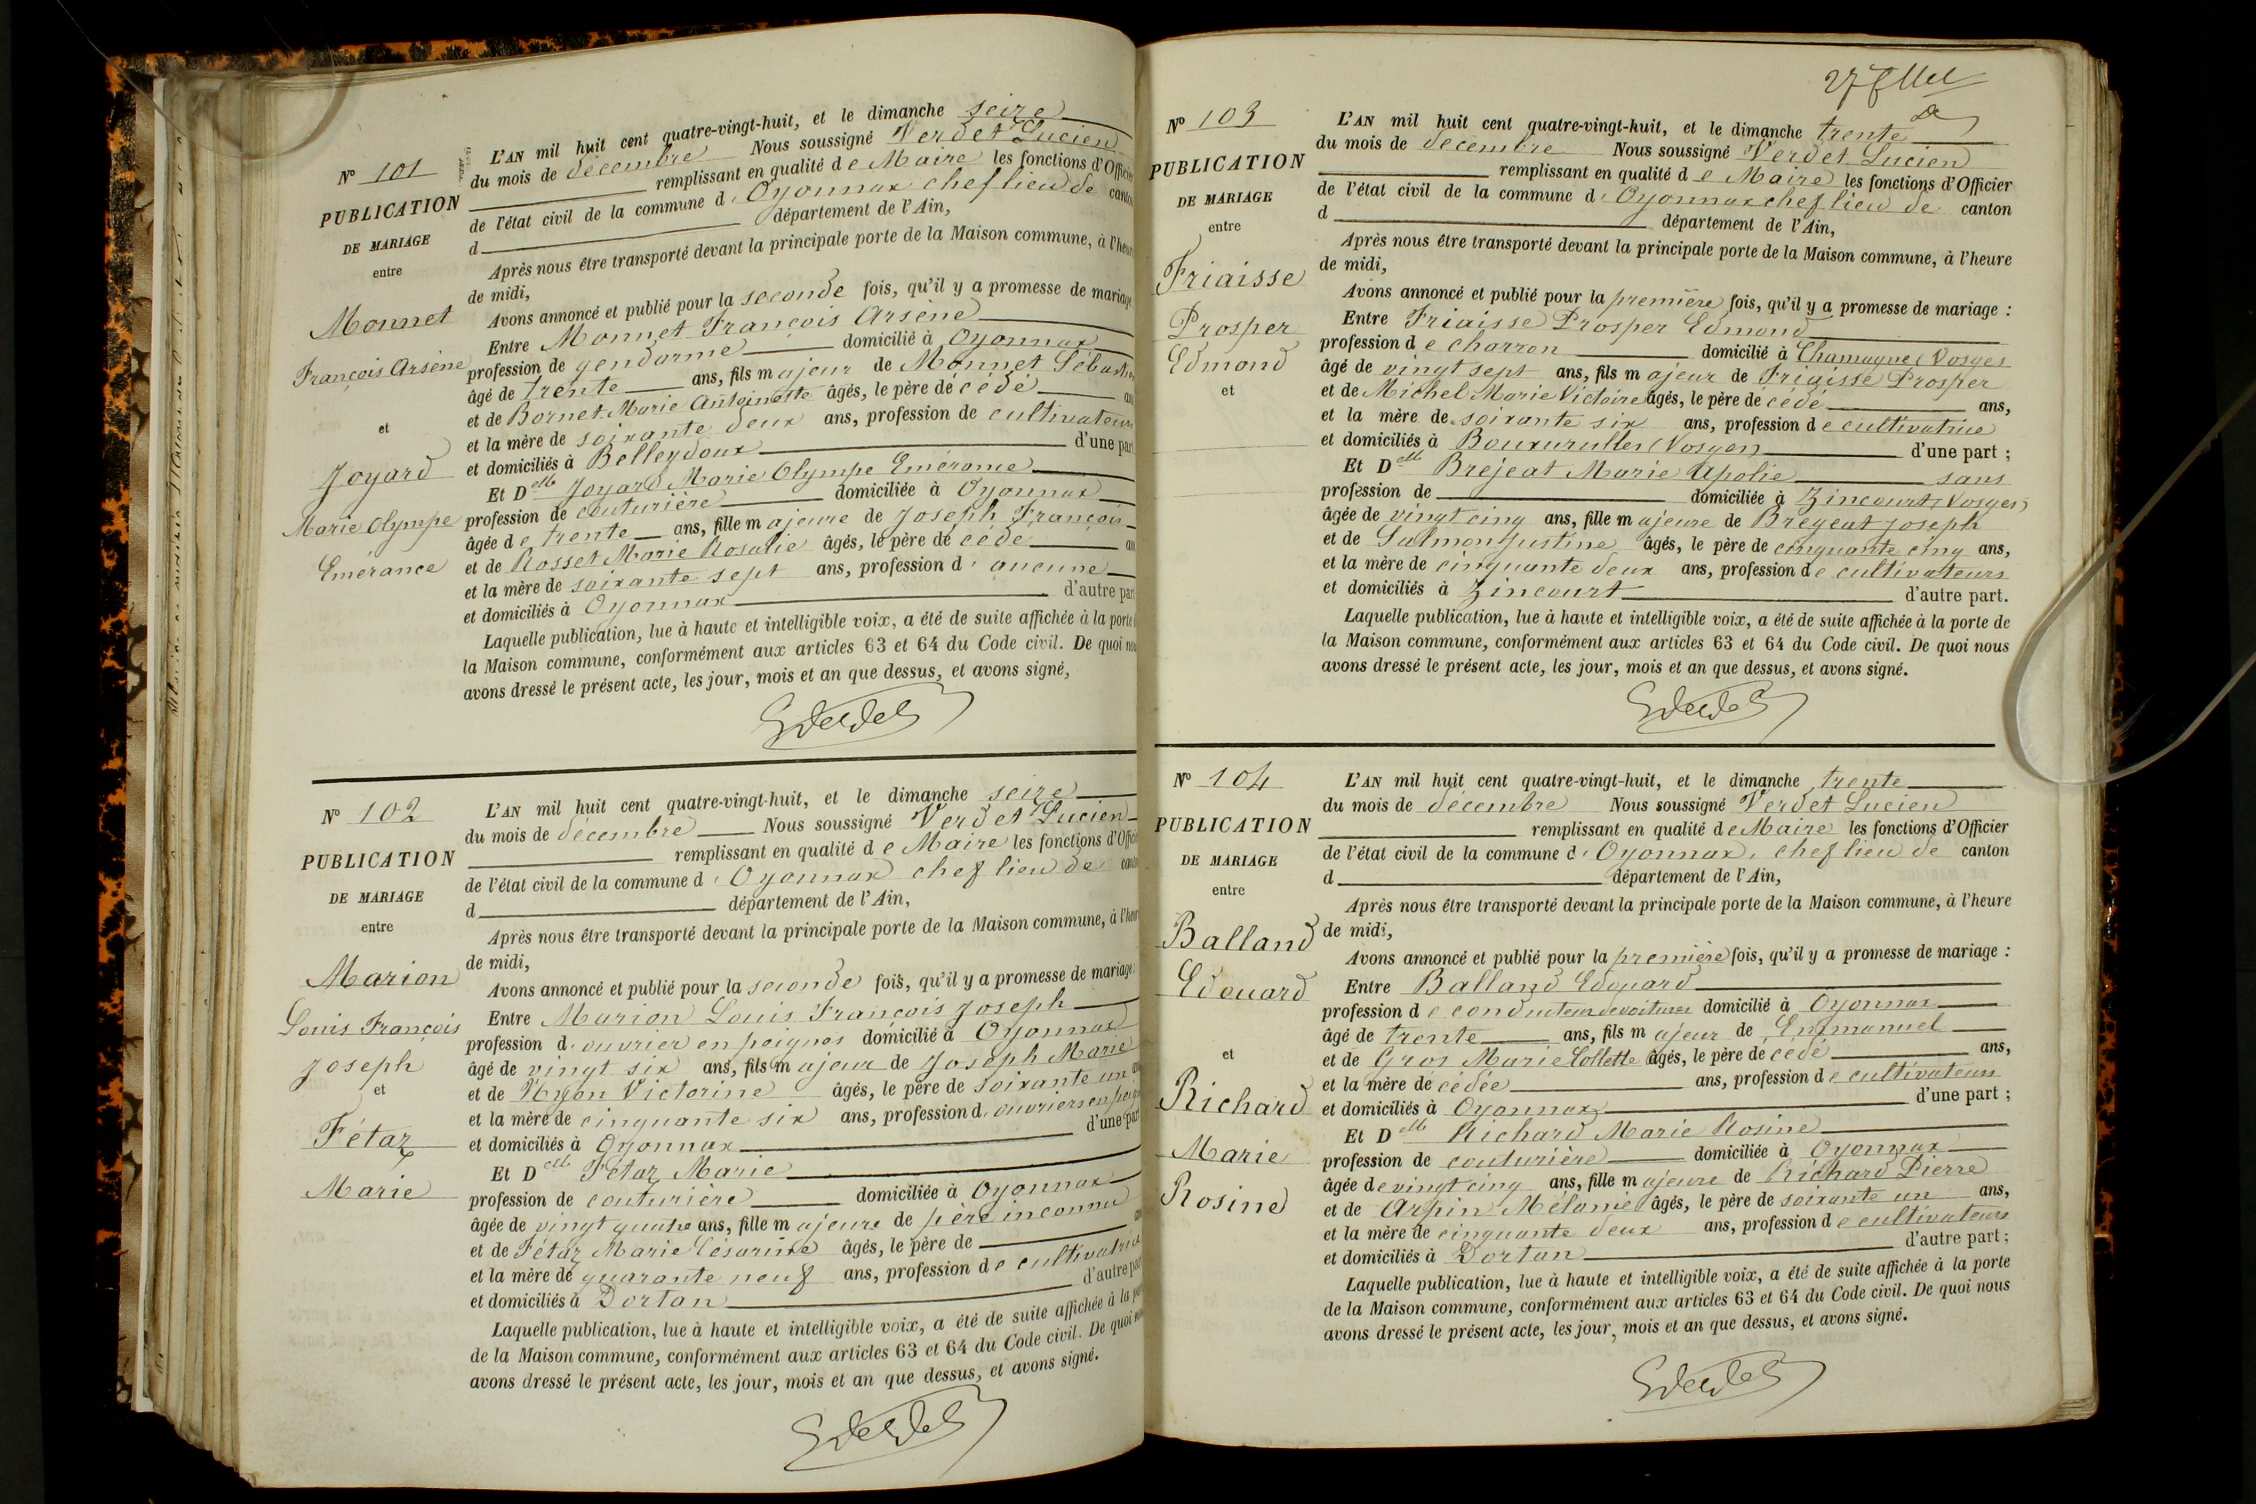 N° 101
PUBLICATION
DE MARIAGE
entre
Monnet
François Arsène
et
Joyard
Marie Olympe
Emérance
L'AN mil huit cent quatre-vingt-huit, et le dimanche seize
du mois de décembre Nous soussigné Verdet Lucien
remplissant en qualité de Maire les fonctions d'Officier
de l'état civil de la commune d'Oyonnax chef lieu de canton
d département de l'Ain,
Après nous être transporté devant la principale porte de la Maison commune, à l'heure
de midi,
Avons annoncé et publié pour la seconde fois, qu'il y a promesse de mariage
Entre Monnet François Arsène
profession de gendarme domicilié à Oyonnax
âgé de trente ans, fils majeur de Monnet Sébastien
et de Bornet Marie Antoinette âgés, le père décédé an
et la mère de soixante deux ans, profession de cultivateurs
et domiciliés à Belleydoux d'une part
Et Delle Joyard Marie Olympe Emérance
profession de couturière domiciliée à Oyonnax
âgée de trente ans, fille majeure de Joseph François
et de Rosset Marie Rosalie âgés, le père décédé an
et la mère de soixante sept ans, profession d'aucune
et domiciliés à Oyonnax d'autre part
Laquelle publication, lue à haute et intelligible voix, a été de suite affichée à la porte
la Maison commune, conformément aux articles 63 et 64 du Code civil. De quoi nous
avons dressé le présent acte, les jour, mois et an que dessus, et avons signé,
N° 102
PUBLICATION
DE MARIAGE
entre
Marion
Louis François
Joseph
et
Fétaz
Marie
L'AN mil huit cent quatre-vingt-huit, et le dimanche seize
du mois de décembre Nous soussigné Verdet Lucien
remplissant en qualité de Maire les fonctions d'Officier
de l'état civil de la commune d'Oyonnax chef lieu de canton
d département de l'Ain,
Après nous être transporté devant la principale porte de la Maison commune, à l'heure
de midi,
Avons annoncé et publié pour la seconde fois, qu'il y a promesse de mariage
Entre Marion Louis François Joseph
profession d'ouvrier en peignes domicilié à Oyonnax
âgé de vingt six ans, fils majeur de Joseph Marie
et de Nyon Victorine âgés, le père de soixante un an
et la mère de cinquante six ans, profession d'ouvriers en peignes
et domiciliés à Oyonnax d'une part
Et Delle Fétaz Marie
profession de couturière domiciliée à Oyonnax
âgée de vingt quatre ans, fille majeure de père inconnu
et de Fétaz Marie Césarine âgés, le père de an
et la mère de quarante neuf ans, profession de cultivatrice
et domiciliés à Dortan d'autre part
Laquelle publication, lue à haute et intelligible voix, a été de suite affichée à la porte
de la Maison commune, conformément aux articles 63 et 64 du Code civil. De quoi nous
avons dressé le présent acte, les jour, mois et an que dessus, et avons signé.
N° 103
PUBLICATION
DE MARIAGE
entre
Friaisse
Prosper
Edmond
et
L'AN mil huit cent quatre-vingt-huit, et le dimanche trente
du mois de décembre Nous soussigné Verdet Lucien
remplissant en qualité de Maire les fonctions d'Officier
de l'état civil de la commune d'Oyonnax chef lieu de canton
d département de l'Ain,
Après nous être transporté devant la principale porte de la Maison commune, à l'heure
de midi,
Avons annoncé et publié pour la première fois, qu'il y a promesse de mariage :
Entre Friaisse Prosper Edmond
profession de charron domicilié à Chamagne (Vosges
âgé de vingt sept ans, fils majeur de Friaisse Prosper
et de Michel Marie Victoire âgés, le père décédé ans,
et la mère de soixante six ans, profession de cultivatrice
et domiciliés à Bouxurulles (Vosges d'une part ;
Et Delle Brejeat Marie Apolie sans
profession de domiciliée à Zincourt (Vosges)
âgée de vingt cinq ans, fille majeure de Bregeat Joseph
et de Salmon Justine âgés, le père de cinquante cinq ans,
et la mère de cinquante deux ans, profession de cultivateurs
et domiciliés à Zincourt d'autre part.
Laquelle publication, lue à haute et intelligible voix, a été de suite affichée à la porte de
la Maison commune, conformément aux articles 63 et 64 du Code civil. De quoi nous
avons dressé le présent acte, les jour, mois et an que dessus, et avons signé.
N° 104
PUBLICATION
DE MARIAGE
entre
Balland
Edouard
et
Richard
Marie
Rosine
L'AN mil huit cent quatre-vingt-huit, et le dimanche trente
du mois de décembre Nous soussigné Verdet Lucien
remplissant en qualité de Maire les fonctions d'Officier
de l'état civil de la commune d'Oyonnax, chef lieu de canton
d département de l'Ain,
Après nous être transporté devant la principale porte de la Maison commune, à l'heure
de midi,
Avons annoncé et publié pour la première fois, qu'il y a promesse de mariage :
Entre Balland Edouard
profession de conducteur de voitures domicilié à Oyonnax
âgé de trente ans, fils majeur de Emmanuel
et de Gros Marie Collette âgés, le père décédé ans,
et la mère décédée ans, profession de cultivateurs
et domiciliés à Oyonnax d'une part ;
Et Delle Richard Marie Rosine
profession de couturière domiciliée à Oyonnax
âgée de vingt cinq ans, fille majeure de Richard Pierre
et de Arpin Mélanie âgés, le père de soixante un ans,
et la mère de cinquante deux ans, profession de cultivateurs
et domiciliés à Dortan d'autre part ;
Laquelle publication, lue à haute et intelligible voix, a été de suite affichée à la porte
de la Maison commune, conformément aux articles 63 et 64 du Code civil. De quoi nous
avons dressé le présent acte, les jour, mois et an que dessus, et avons signé.